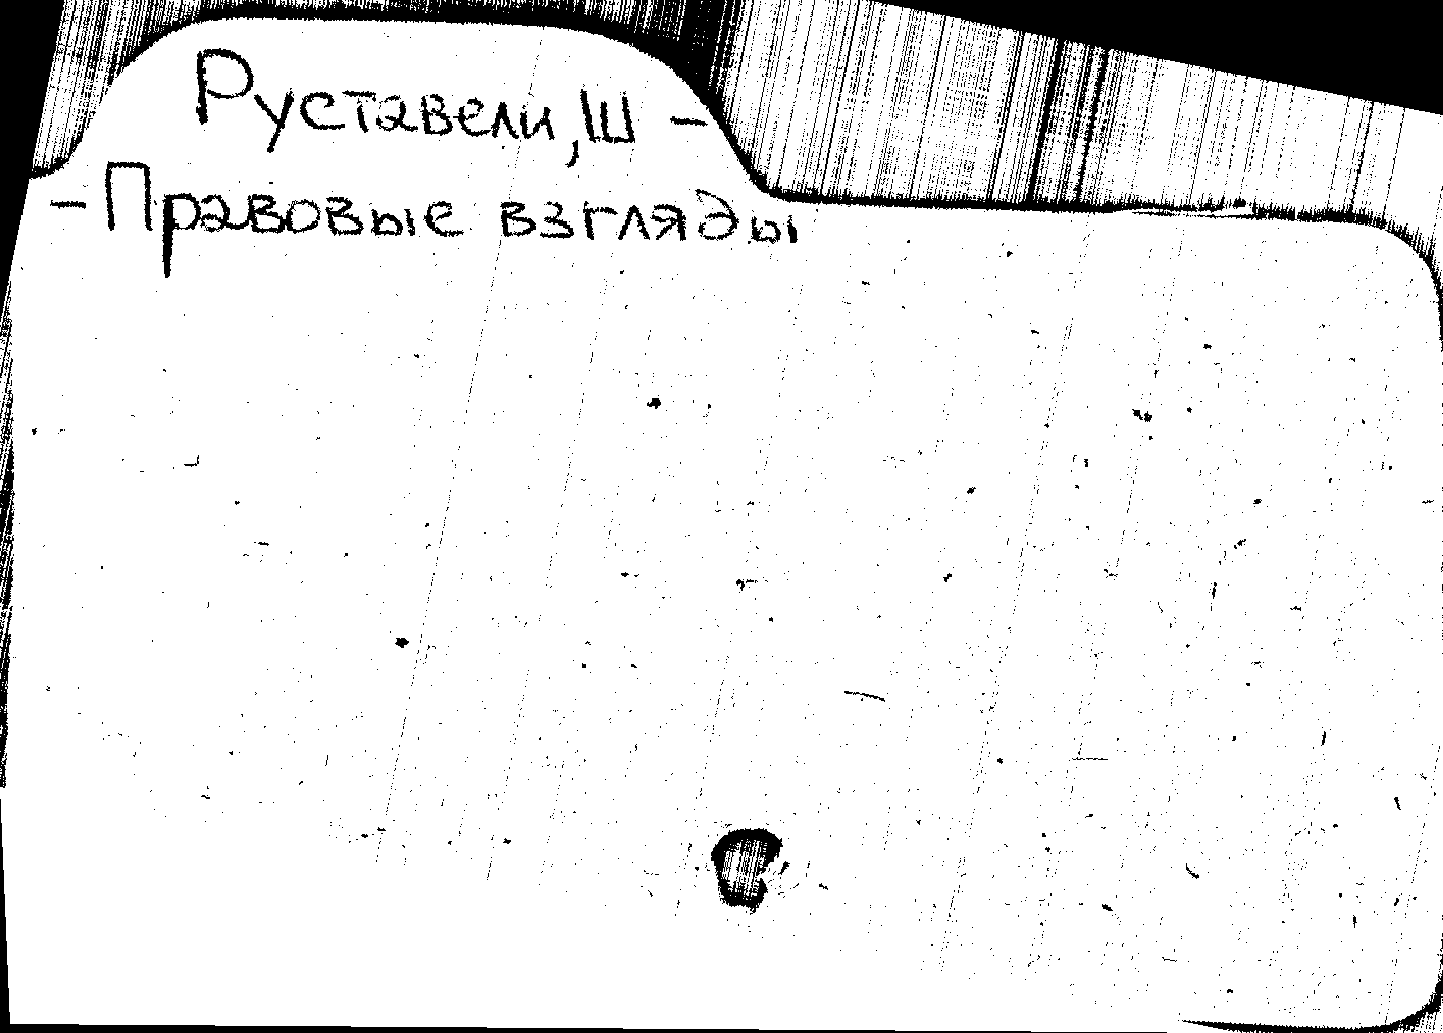 Руставели, Ш –
– Правовые взгляды